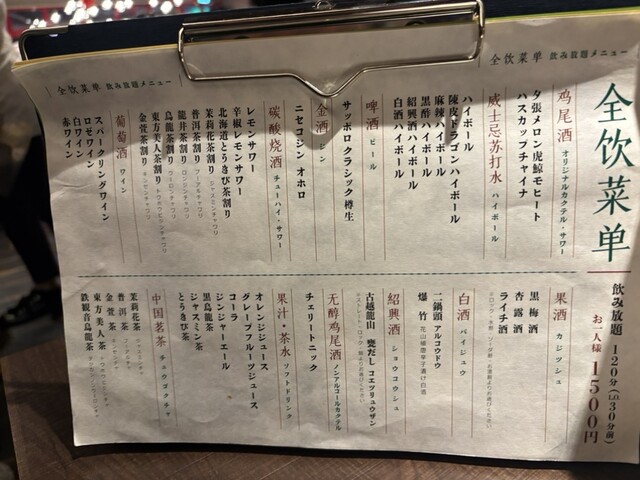 全饮菜单 飲み放題メニュー
全饮菜单 飲み放題メニュー
全饮菜单
飲み放題 120分(L.O.30分前)
お一人様 1500円
鸡尾酒 オリジナルカクテル・サワー
夕張メロン虎鯨モヒート
ハスカップチャイナ
威士忌苏打水 ハイボール
ハイボール
陳皮ドラゴンハイボール
麻辣ハイボール
黒酢ハイボール
紹興酒ハイボール
白酒ハイボール
啤酒 ビール
サッポロクラシック樽生
金酒 ジン
ニセコジン オホロ
碳酸烧酒 チューハイ・サワー
レモンサワー
辛椒レモンサワー
北海道とうきび茶割り
茉莉花茶割り ジャスミンチャワリ
普洱茶割り プーアルチャワリ
龍井茶割り ロンジンチャワリ
烏龍茶割り ウーロンチャワリ
東方美人茶割り
金萱茶割り キンセンチャワリ
葡萄酒 ワイン
スパークリングワイン
ロゼワイン
白ワイン
赤ワイン
果酒 カジツシュ
黒梅酒
杏露酒
ライチ酒
白酒 パイジュウ
二鍋頭 アルコウドウ
爆竹
紹興酒 ショウコウシュ
古越龍山 甕だし コエツリュウザン
无醇鸡尾酒 ノンアルコールカクテル
チェリートニック
果汁・茶水 ソフトドリンク
オレンジジュース
グレープフルーツジュース
コーラ
ジンジャーエール
黒烏龍茶
ジャスミン茶
とうきび茶
中国茗茶 チュウゴクチャ
茉莉花茶 ジャスミンチャ
普洱茶 プーアルチャ
金萱茶 キンセンチャ
東方美人茶
鉄観音烏龍茶